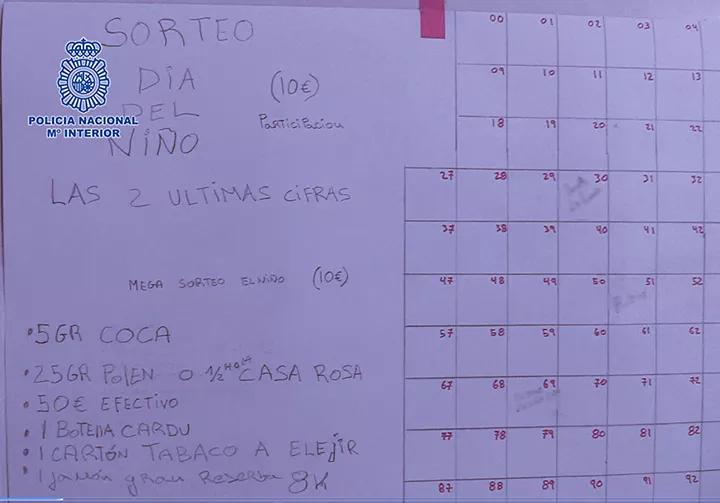 SORTEO
DIA
DEL
NIÑO
(10€)
Participacion
POLICIA NACIONAL
Mº INTERIOR
LAS 2 ULTIMAS CIFRAS
MEGA SORTEO EL NIÑO (10€)
• 5GR COCA
• 25GR POLEN O 1/2 CASA ROSA
• 50€ EFECTIVO
• 1 BOTELLA CARDU
• 1 CARTÓN TABACO A ELEJIR
• 1 jamón gran Reserva 8K
00 01 02 03 04
09 10 11 12 13
18 19 20 21 22
27 28 29 30 31 32
37 38 39 40 41 42
47 48 49 50 51 52
57 58 59 60 61 62
67 68 69 70 71 72
77 78 79 80 81 82
87 88 89 90 91 92